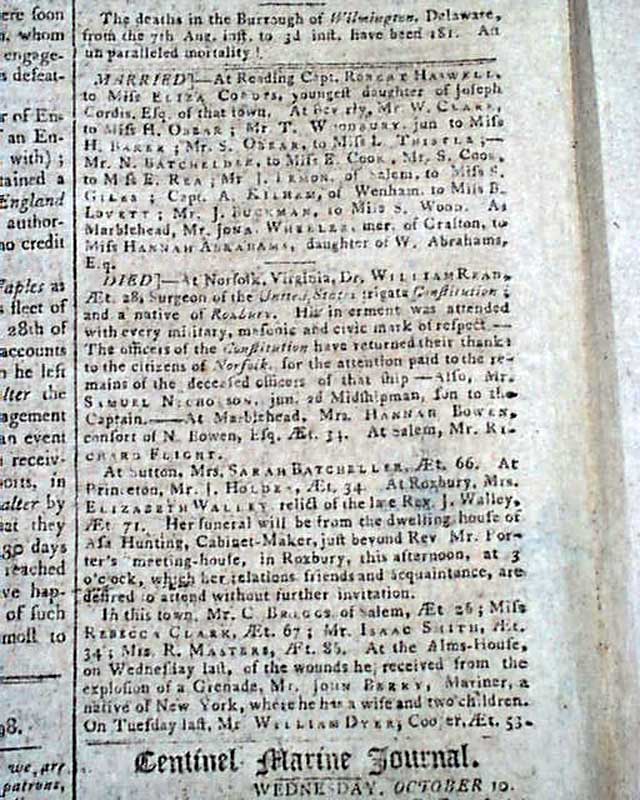 ere soon
whom
engage-
defeat-
r of En-
an En-
with) ;
tained a
England
author-
no credit
Naples as
fleet of
28th of
accounts
he left
the
agement
an event
receiv-
ports, in
by
hat they
days
reached
ve hap-
of such
moſt to
98.
we, are
patrons,
The deaths in the Burrough of Wilmington, Delaware,
from the 7th Aug. inſt. to 3d inſt. have been 181. An
unparalleled mortality !
MARRIED]—At Reading Capt. ROBERT HASWELL,
to Miſs ELIZA CORDIS, youngeſt daughter of Joſeph
Cordis, Eſq. of that town. At Beverly, Mr. W. CLARK,
to Miſs H. OBEAR ; Mr. T. WOODBURY, jun to Miſs
H. BAKER ; Mr. S. OBEAR, to Miſs L. THISTLE ;—
Mr. N. BATCHELDER, to Miſs E. COOK, Mr. S. COOK,
to Miſs E. REA ; Mr J. LEMON, of Salem, to Miſs S.
GILES ; Capt. A. KILHAM, of Wenham, to Miſs B.
LOVETT ; Mr. J. BUCKMAN, to Miſs S. WOOD. At
Marblehead, Mr. JONA. WHEELER, mer, of Grafton, to
Miſs HANNAH ABRAHAMS, daughter of W. Abrahams,
Eſq.
DIED]—At Norfolk, Virginia, Dr. WILLIAM READ,
Æt. 28, Surgeon of the United States frigate Conſtitution ;
and a native of Roxbury. His interment was attended
with every military, maſonic and civic mark of reſpect.—
The officers of the Conſtitution have returned their thanks
to the citizens of Norfolk, for the attention paid to the re-
mains of the deceaſed officers of that ſhip—Alſo, Mr.
SAMUEL NICHOLSON, jun. 2d Midſhipman, ſon to the
Captain.——At Marblehead, Mrs. HANNAH BOWEN,
conſort of N. Bowen, Eſq. Æt. 34. At Salem, Mr. RI-
CHARD FLIGHT.
At Sutton, Mrs. SARAH BATCHELLER, Æt. 66. At
Princeton, Mr. J. HOLDEN, Æt. 34. At Roxbury, Mrs.
ELIZABETH WALLEY relict of the late Rev. J. Walley,
Æt. 71. Her funeral will be from the dwelling houſe of
Aſa Hunting, Cabinet-Maker, juſt beyond Rev Mr. Por-
ter's meeting-houſe, in Roxbury, this afternoon, at 3
o'clock, which her relations friends and acquaintance, are
deſired to attend without further invitation.
In this town, Mr. C. BRIGGS, of Salem, Æt 26 ; Miſs
REBECCA CLARK, Æt. 67 ; Mr. ISAAC SMITH, Æt.
34 ; Mrs. R. MASTERS, Æt. 86. At the Alms-Houſe,
on Wedneſday laſt, of the wounds he received from the
exploſion of a Grenade, Mr. JOHN BERRY, Mariner, a
native of New York, where he has a wife and two children.
On Tueſday laſt, Mr WILLIAM DYER, Cooper, Æt. 53.
Centinel Marine Journal.
WEDNESDAY, OCTOBER 10.